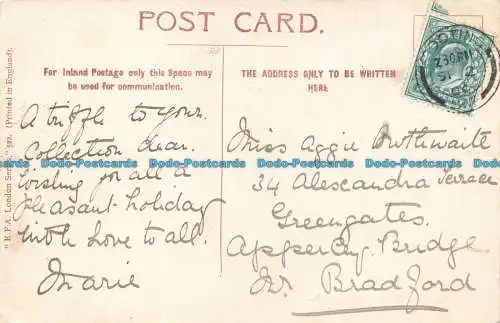 POST CARD.
For Inland Postage only this Space may
be used for communication.
THE ADDRESS ONLY TO BE WRITTEN
HERE
"R.F.A. London Series." 322. (Printed in England).
A triffle to your
Collection dear.
Wishing you all a
pleasant holiday
with love to all.
Marie
Miss Aggie Outhwaite
34 Alexandra Terrace
Greengates.
Apperley Bridge.
Nr. Bradford
Dodo-Postcards Dodo-Postcards Dodo-Postcards Dodo-Postcards Dodo-Postcards